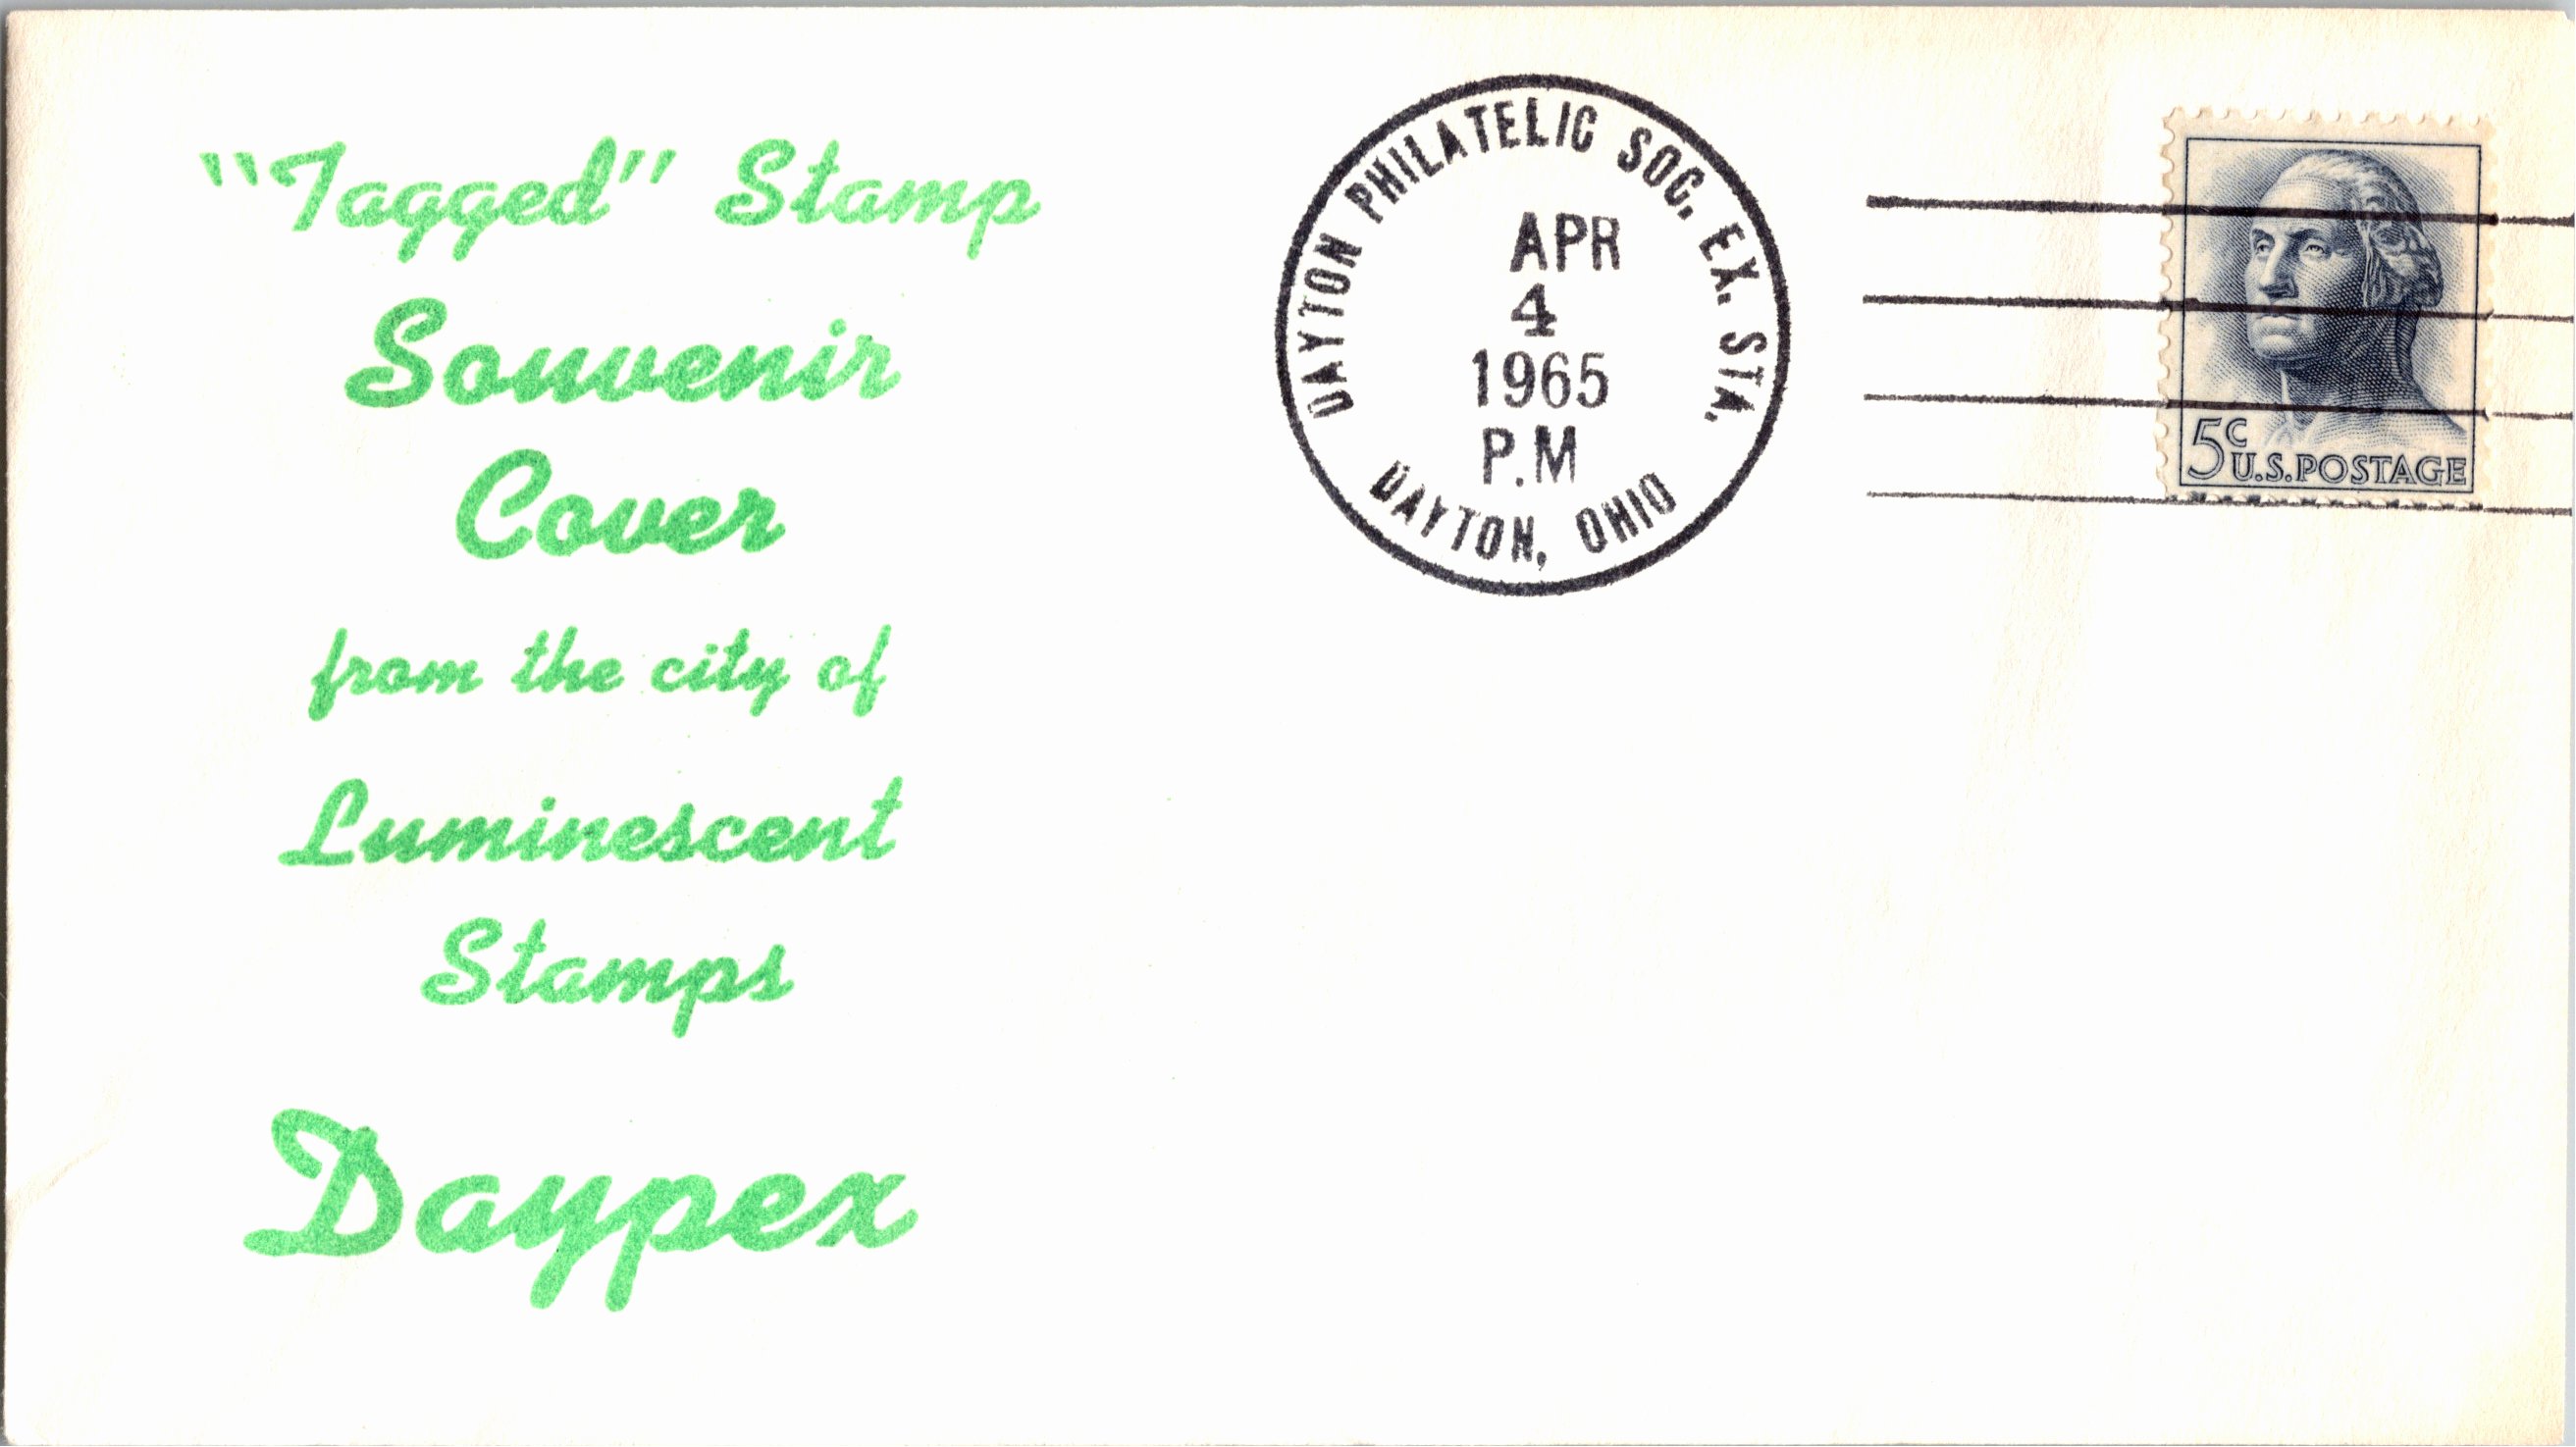 "Tagged" Stamp
Souvenir
Cover
from the city of
Luminescent
Stamps
Daypex
DAYTON PHILATELIC SOC. EX. STA.
APR
4
1965
P.M
DAYTON, OHIO
5c U.S. POSTAGE